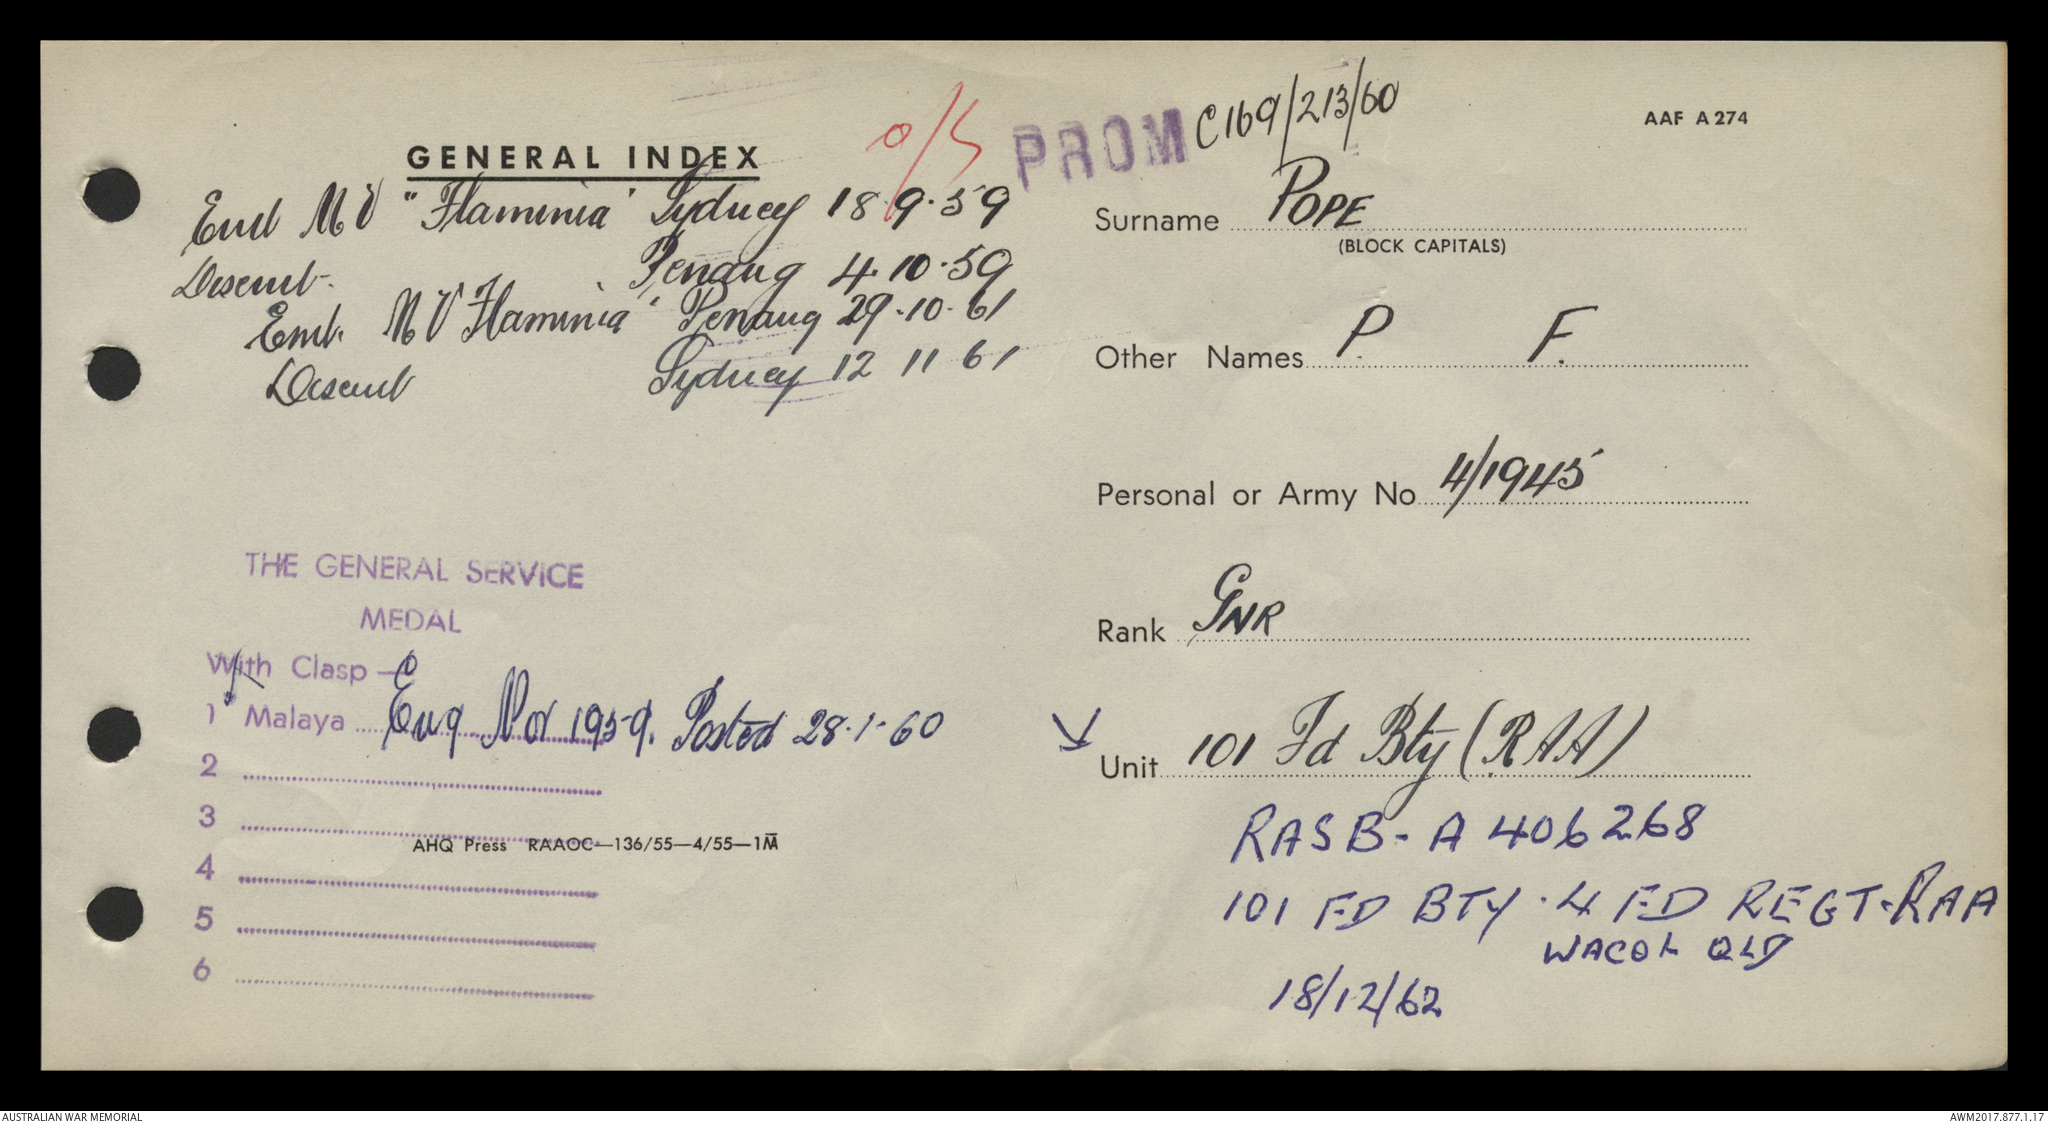 GENERAL INDEX
o/s
PROM C169/213/60
AAF A 274
Emb MV "Flaminia" Sydney 18.9.59
Disemb. Penang 4.10.59
Emb. MV Flaminia" Penang 29.10.61
Disemb Sydney 12 11 61
Surname POPE
(BLOCK CAPITALS)
Other Names P. F.
Personal or Army No 4/1945
Rank GNR
Unit 101 Fd Bty (RAA)
RASB - A 406268
101 FD BTY . 4 FD REGT - RAA
WACOL QLD
18/12/62
THE GENERAL SERVICE
MEDAL
With Clasp — C
1 Malaya Eng Nov 1959. Posted 28.1.60
2
3
AHQ Press RAAOC—136/55—4/55—1M
4
5
6
AUSTRALIAN WAR MEMORIAL
AWM2017.877.1.17